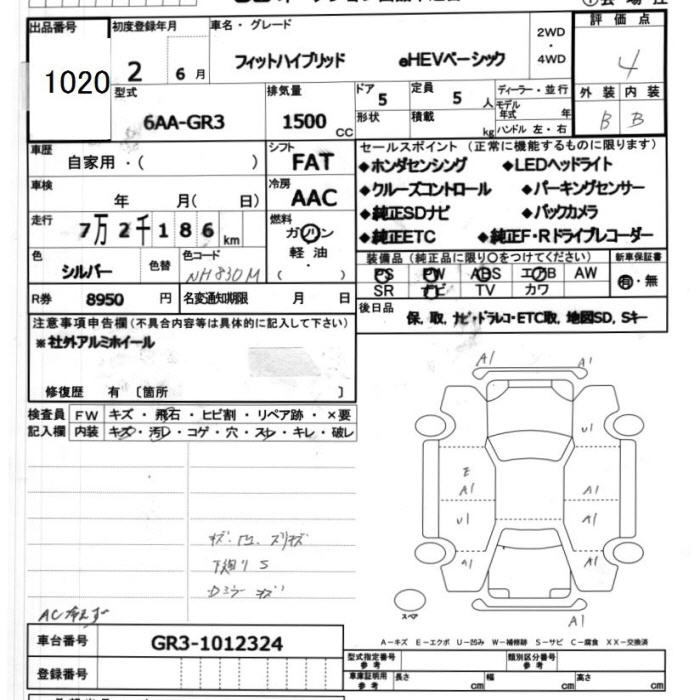 出品番号 初度登録年月 車名・グレード 2WD ・ 4WD 評価点
1020 2 6月 フィットハイブリッド eHEVベーシック 4
型式 排気量 ドア 定員 ディーラー・並行 外装 内装
6AA-GR3 1500 CC 5 5 人 モデル年式 年 B B
形状 積載 kg ハンドル 左・右
車歴 自家用・( ) シフト FAT セールスポイント (正常に機能するものに限ります)
◆ホンダセンシング ◆LEDヘッドライト
車検 年 月( 日) 冷房 AAC ◆クルーズコントロール ◆パーキングセンサー
走行 7万2千186km 燃料 ガソリン ◆純正SDナビ ◆バックカメラ
軽油 ・( ) ◆純正ETC ◆純正F・Rドライブレコーダー
色 シルバー 色替 色コード NH830M 装備品 (純正品に限り○をつけてください) 新車保証書
PS PW ABS エアB AW 有・無
R券 8950 円 名変通知期限 月 日 SR ナビ TV カワ
注意事項申告欄(不具合内容等は具体的に記入して下さい) 後日品
※社外アルミホイール 保, 取, ナビ・ドラレコ・ETC取, 地図SD, Sキー
修復歴 有 〔箇所 〕
検査員 FW キズ・飛石・ヒビ割・リペア跡・×要
記入欄 内装 キズ・汚レ・コゲ・穴・スレ・キレ・破レ
A1 A1
U1
E
A1 A1
U1 A1
A1 A1
下廻りS
スペア A1
車台番号 GR3-1012324
A-キズ E-エクボ U-凹み W-補修跡 S-サビ C-腐食 XX-交換済
型式指定番号 参考 類別区分番号 参考
登録番号 車庫証明用 参考 長さ cm 幅 cm 高さ cm